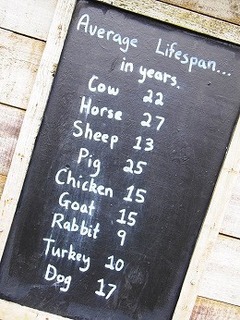 Average Lifespan...
in years.
Cow 22
Horse 27
Sheep 13
Pig 25
Chicken 15
Goat 15
Rabbit 9
Turkey 10
Dog 17